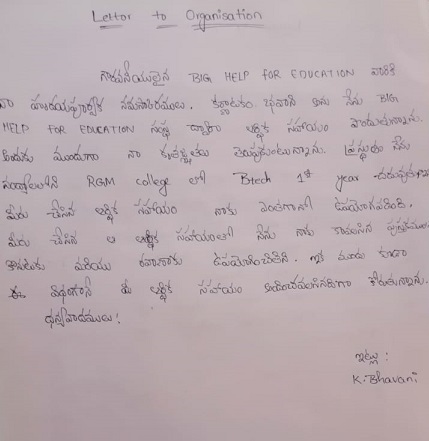 Letter to Organisation
గౌరవనీయులైన BIG HELP FOR EDUCATION వారికి
నా హృదయపూర్వక నమస్కారములు. భవాని అను నేను BIG
HELP FOR EDUCATION సంస్థ ద్వారా ఆర్థిక సహాయం పొందుతున్నాను.
అందుకు ముందుగా నా కృతజ్ఞతలు తెలుపుకుంటున్నాను. ప్రస్తుతం నేను
నంద్యాలలోని RGM college లో Btech 1st year చదువుతున్నాను
మీరు చేసిన ఆర్థిక సహాయం నాకు ఎంతగానో ఉపయోగపడింది.
మీరు చేసిన ఆ ఆర్థిక సహాయంతో నేను నాకు కావలసిన పుస్తకములు
కొనుటకు మరియు ఉపయోగించితిని. ఇక ముందు కూడా
ఈ విధంగానే మీ ఆర్థిక సహాయం అందించవలసినదిగా కోరుతున్నాను.
ధన్యవాదములు!
ఇట్లు :
K. Bhavani